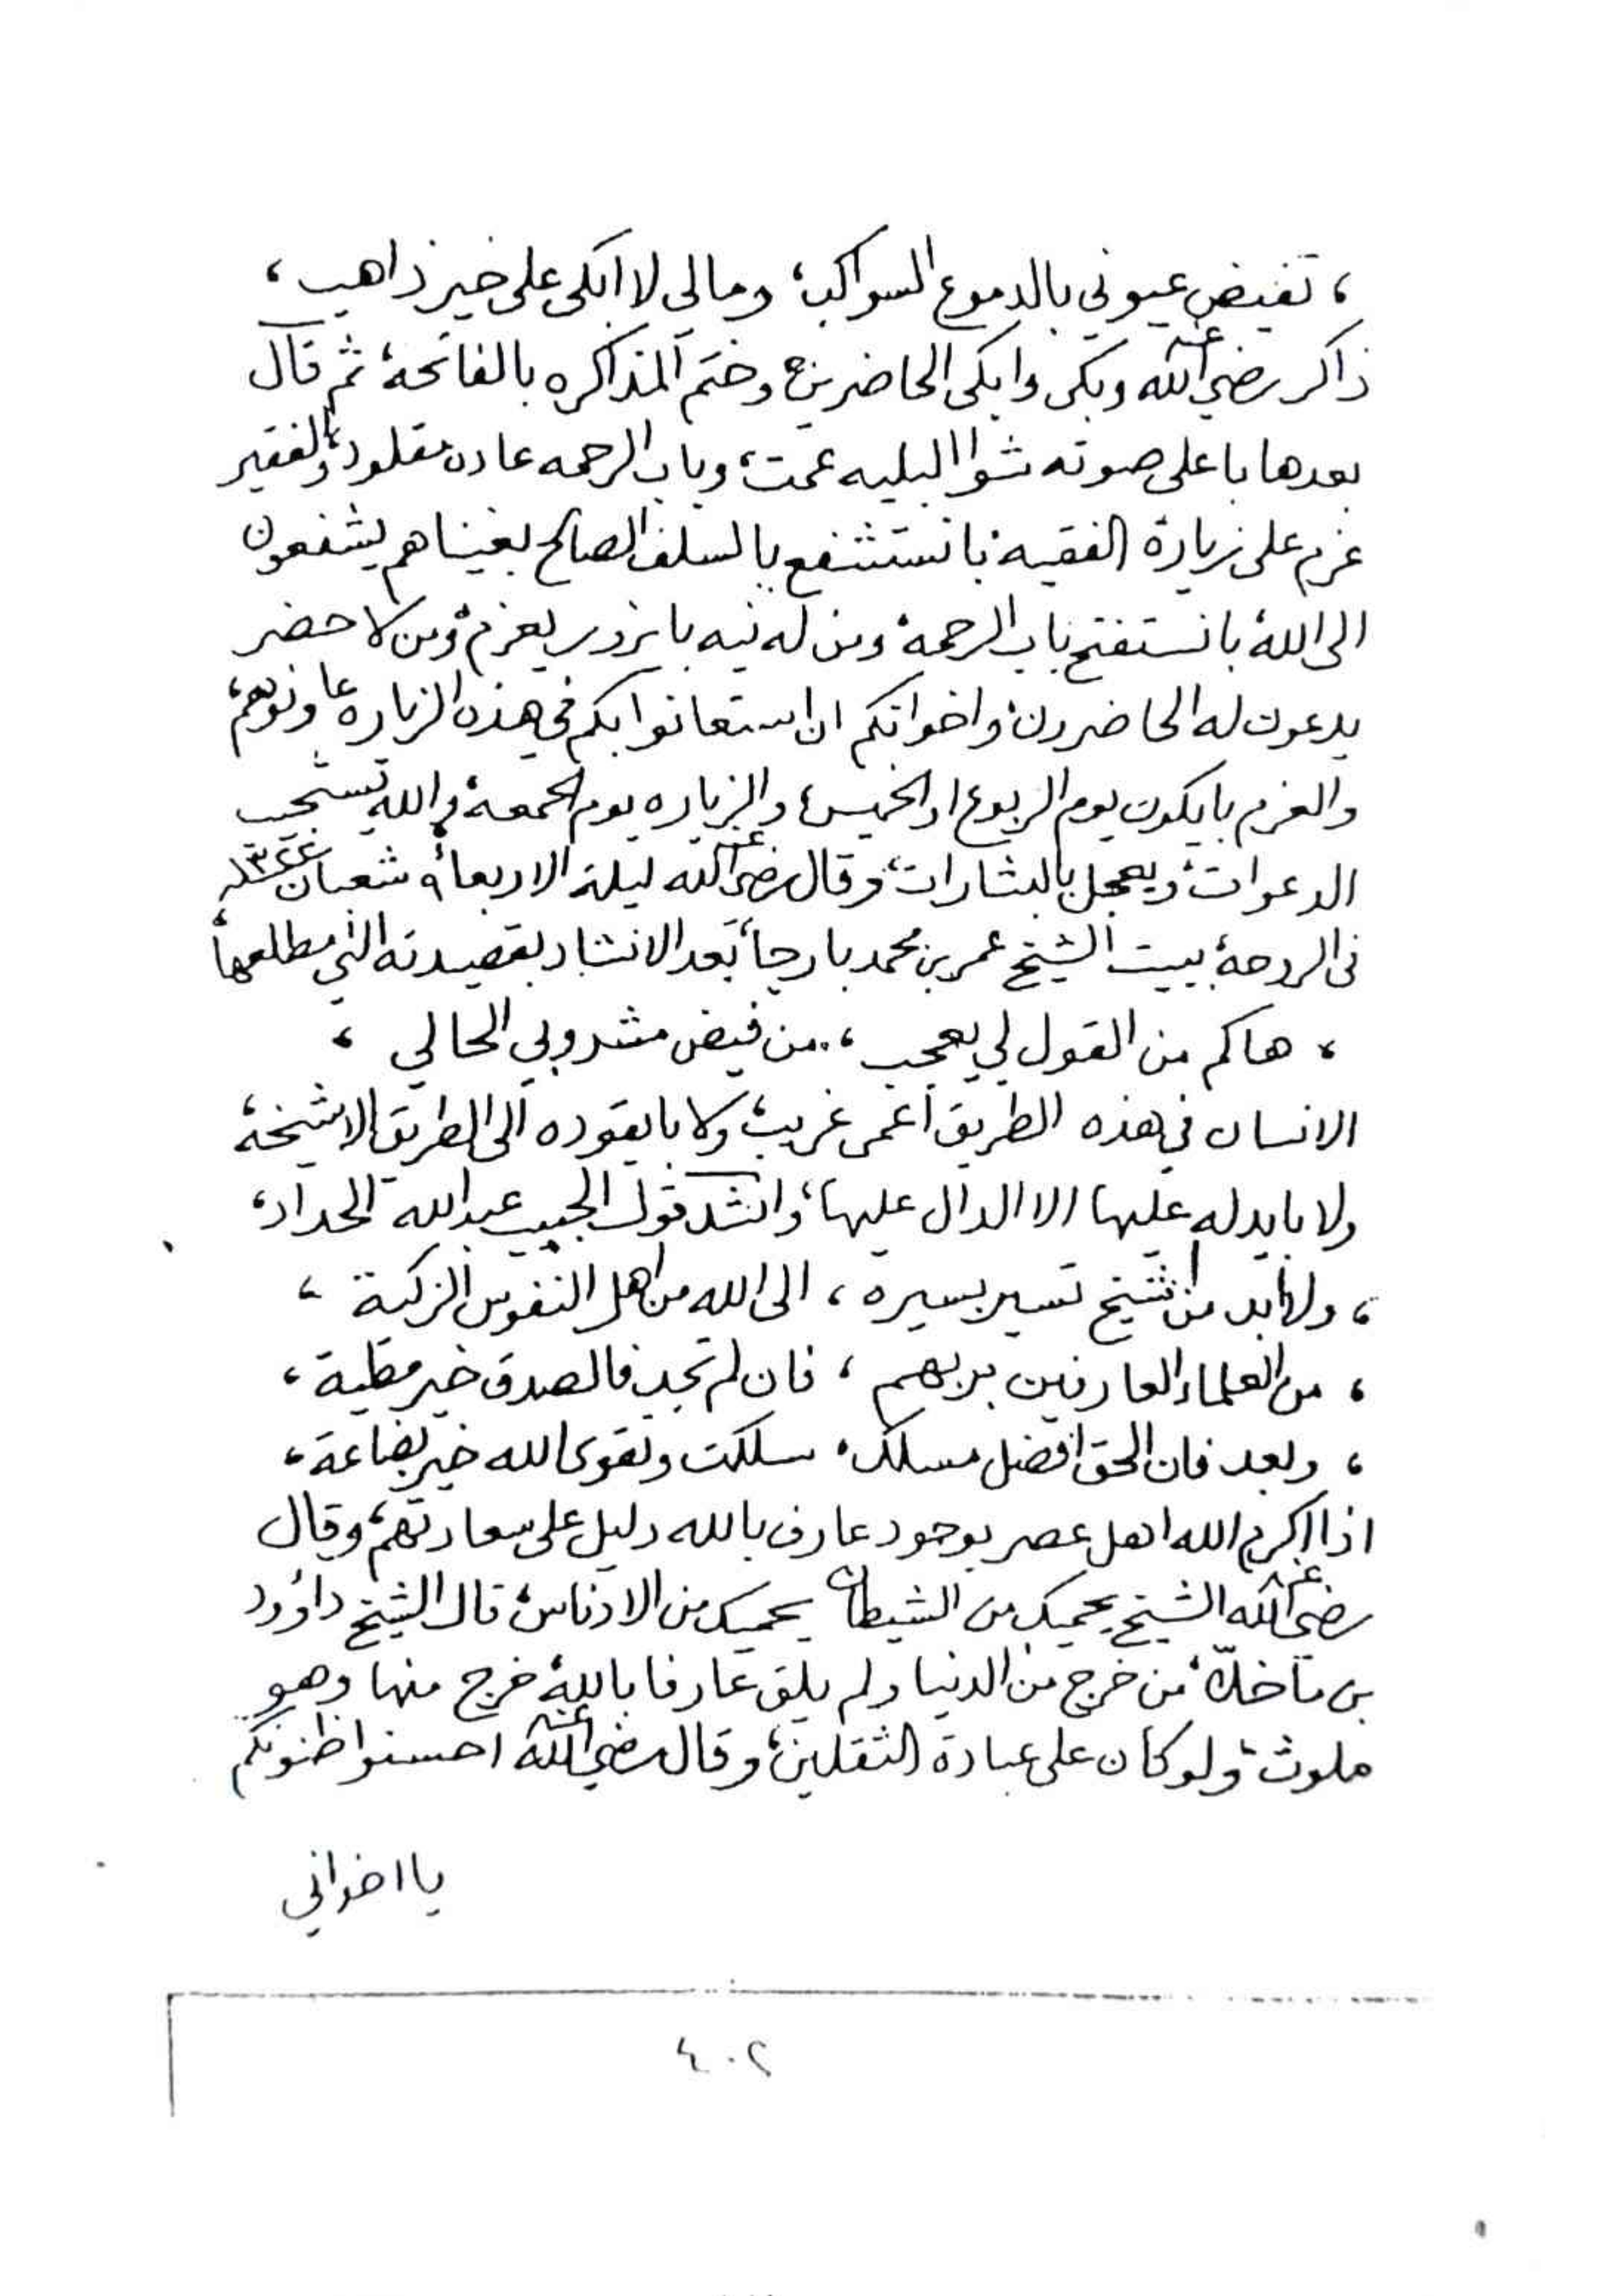 ، تفيض عيوني بالدموع السواكب، ومالي لا ابكي على خير ذاهب ،
ذاكر رضي الله عنه وبكى وابكى الحاضرين، وختم المذاكره بالفاتحة، ثم قال
بعدها باعلى صوته شوا البليه عمت، وباب الرحمه عاده مقلود، والفقير
عزم على زيارة الفقيه، بانستشفع بالسلف الصالح بغيناهم يشفعون
الى الله، بانستفتح باب الرحمة، ومن له نيه بايزور يعزم، ومن لا حضر
يدعون له الحاضرون، واخوانكم ان استعانوا بكم في هذه الزياره عاونوهم،
والعزم بايكون يوم الربوع او الخميس، والزياره يوم الجمعة، والله يستجيب
الدعوات، ويعجل بالبشارات، وقال رضي الله عنه ليلة الاربعاء ٩ شعبان
في الروحة، ببيت الشيخ عمر بن محمد بارجاء، بعد الانشاد بقصيدته التي مطلعها،
، هاكم من القول لي يعجب ، من فيض مشروبي الحالي ،
الانسان في هذه الطريق اعمى غريب، ولا بايقوده الى الطريق الا شيخه،
ولا بايدله عليها الا الدال عليها، وانشد قول الحبيب عبدالله الحداد،
، ولابد من شيخ تسير بسيره ، الى الله من اهل النفوس الزكية ،
، من العلماء العارفين بربهم ، فان لم تجد فالصدق خير مطية ،
، وبعد فان الحق افضل مسلك، سلكت وتقوى الله خير بضاعة ،
اذا اكرم الله اهل عصر بوجود عارف بالله دليل على سعادتهم، وقال
رضي الله عنه الشيخ يحميك من الشيطان يحميك من الادناس، قال الشيخ داؤود
بن ماخلا، من خرج من الدنيا ولم يلق عارفا بالله، خرج منها وهو
ملوث، ولو كان على عبادة الثقلين، وقال رضي الله عنه احسنوا ظنونكم
يا اخواني
٤٠٢